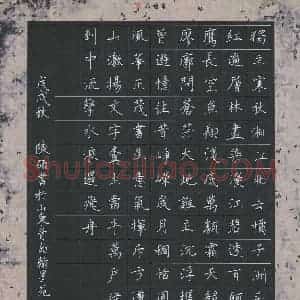 獨立寒秋湘江北去橘子洲
紅遍層林盡染漫江碧透百舸
鷹擊長空魚翔淺底萬類霜天競
廖廓問蒼茫大地誰主沉浮攜
曾遊憶往昔崢嶸歲月稠恰
風華正茂書生意氣揮斥方遒
山激揚文字糞土當年萬戶侯
到中流擊水浪遏飛舟
戊戌秋 書於
Shufaziliao.com